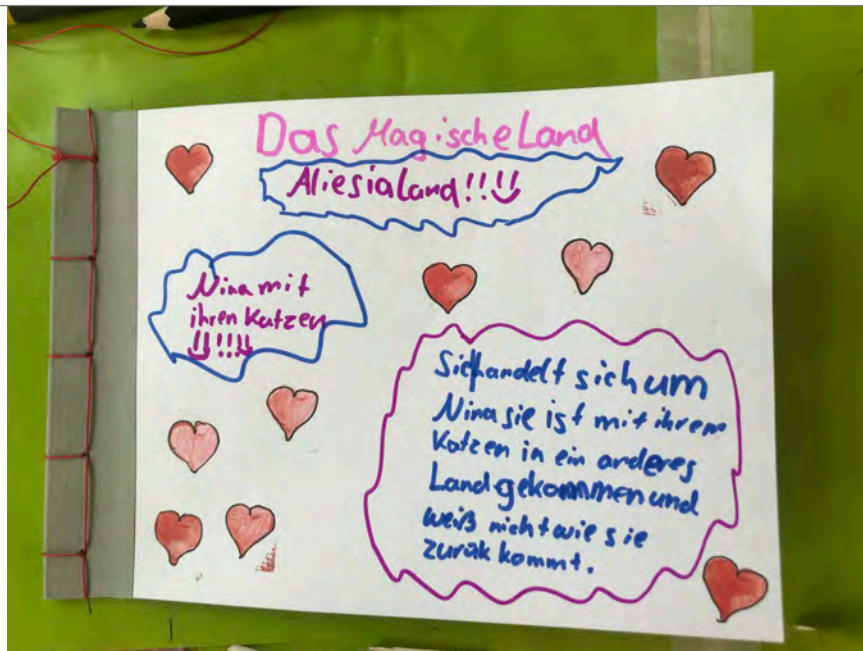 Das Magische Land
Aliesialand!!!
Nina mit
ihren Katzen
!!!!
Sichandelt sich um
Nina sie ist mit ihrem
Katzen in ein anderes
Land gekommen und
weiß nicht wie sie
zurük kommt.